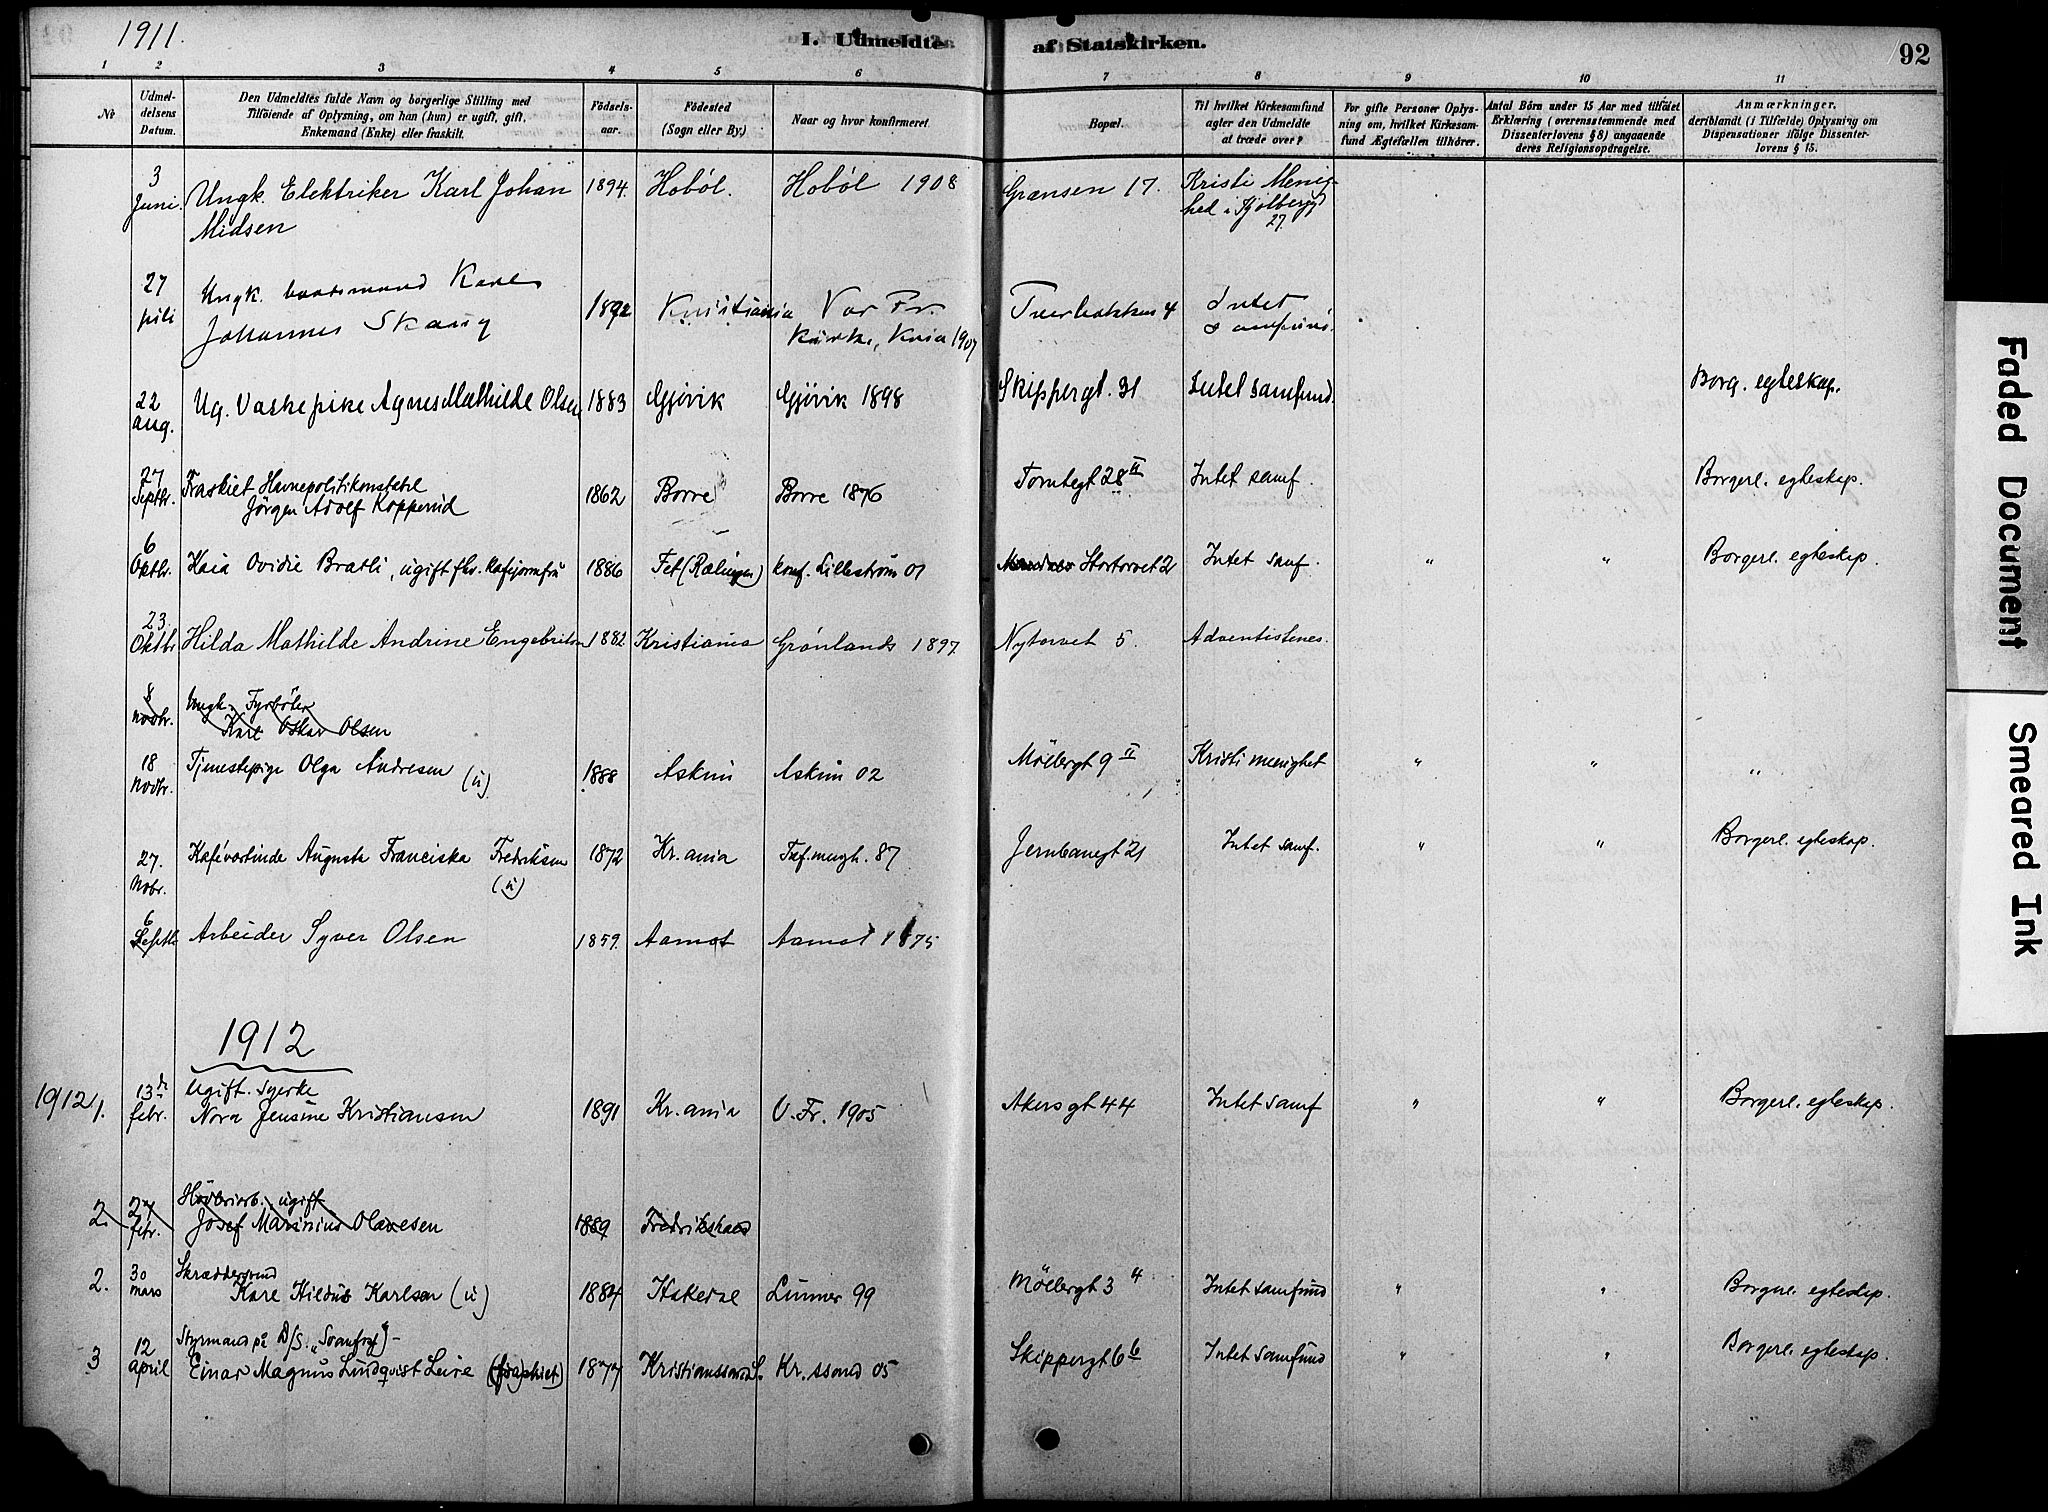 1911.
I. Udmeldte af Statskirken.
92
1 2 3 4 5 6 7 8 9 10 11
№
Udmel-
delsens
Datum.
Den Udmeldtes fulde Navn og borgerlige Stilling med
Tilföiende af Oplysning, om han (hun) er ugift, gift,
Enkemand (Enke) eller fraskilt.
Födsels-
aar.
Födested
(Sogn eller By.)
Naar og hvor konfirmeret
Bopæl.
Til hvilket Kirkesamfund
agter den Udmeldte
at træde over?
For gifte Personer Oplys-
ning om, hvilket Kirkesam-
fund Ægtefællen tilhörer.
Antal Börn under 15 Aar med tilföiet
Erklæring (overensstemmende med
Dissenterlovens § 8) angaaende
deres Religionsopdragelse.
Anmærkninger,
deriblandt (i Tilfælde) Oplysning om
Dispensationer ifölge Dissenter-
lovens § 15.
3 Juni. Ungk. Elektriker Karl Johan 1894. Hoböl. Hoböl 1908 Grænsen 17. Kristi Menig-
Midsen hed i
27.
27 juli Ungk. Karl
Johannes Skaug 1892 Kristiania Vor Fr. 4 Intet
Kirke, Kria 1907 samfund.
22 aug. Ug. Vaskepike Agnes Mathilde Olsen 1883 Gjövik Gjövik 1898 Skippergt. 31 Intet samfund. Borg. egteskap.
27 Septbr. Fraskiet Havnepolitikonstabel
Jörgen Adolf Kopperud 1862 Borre Borre 1876 Tomtegt 28 II Intet samf. Borgerl. egteskap.
6 Oktbr. Kaia Ovidie Bratli, ugift fhv. Kafejomfru 1886 Fet (Rælingen) konf. Lilleström 01 Stortorvet 2 Intet samf. " " Borgerl. egteskap.
23. Oktbr Hilda Mathilde Andrine Engebritsen 1882 Kristiania Grönlands 1897. Nytorvet 5. Adventistenes.
8 Novbr. Ungk. Fyrböter
Karl Oskar Olsen
18 Novbr. Tjenestepige Olga Andresen (u) 1888 Askim Askim 02 Möllergt 9 II Kristi menighet " " "
27. Nobr. Kafévertinde Augusta Franciska Fredriksen 1872 Kr.ania Tref. mngh. 87 Jernbanegt 21 Intet samf. " " Borgerl. egteskap.
(u)
6 Septbr Arbeider Syver Olsen 1859. Aamot Aamot 1875
1912
1912 1. 13de febr. Ugift. Syerke
Nora Jensine Kristiansen 1891 Kr.ania V. Fr. 1905 Akersgt 44 Intet samf " " Borgerl. egteskap.
2. 27 febr. ugift
Josef Marinius Olavesen 1889 Fredrikshald
2. 30 mars Skræddersvend
Karl Hildus Karlsen (u) 1884 Hakedal Lunner 99 Möllergt 3 4 Intet samfund " " Borgerl. egteskap.
3 12 april Styrmand på D/S. "Svanfos" -
Einar Magnus Lindqvist Leire (fraskiet) 1877 Kristianssand S. Kr.ssand 05 Skippergt 6 b Intet samfund " " Borgerl. egteskap.
Faded Document
Smeared Ink